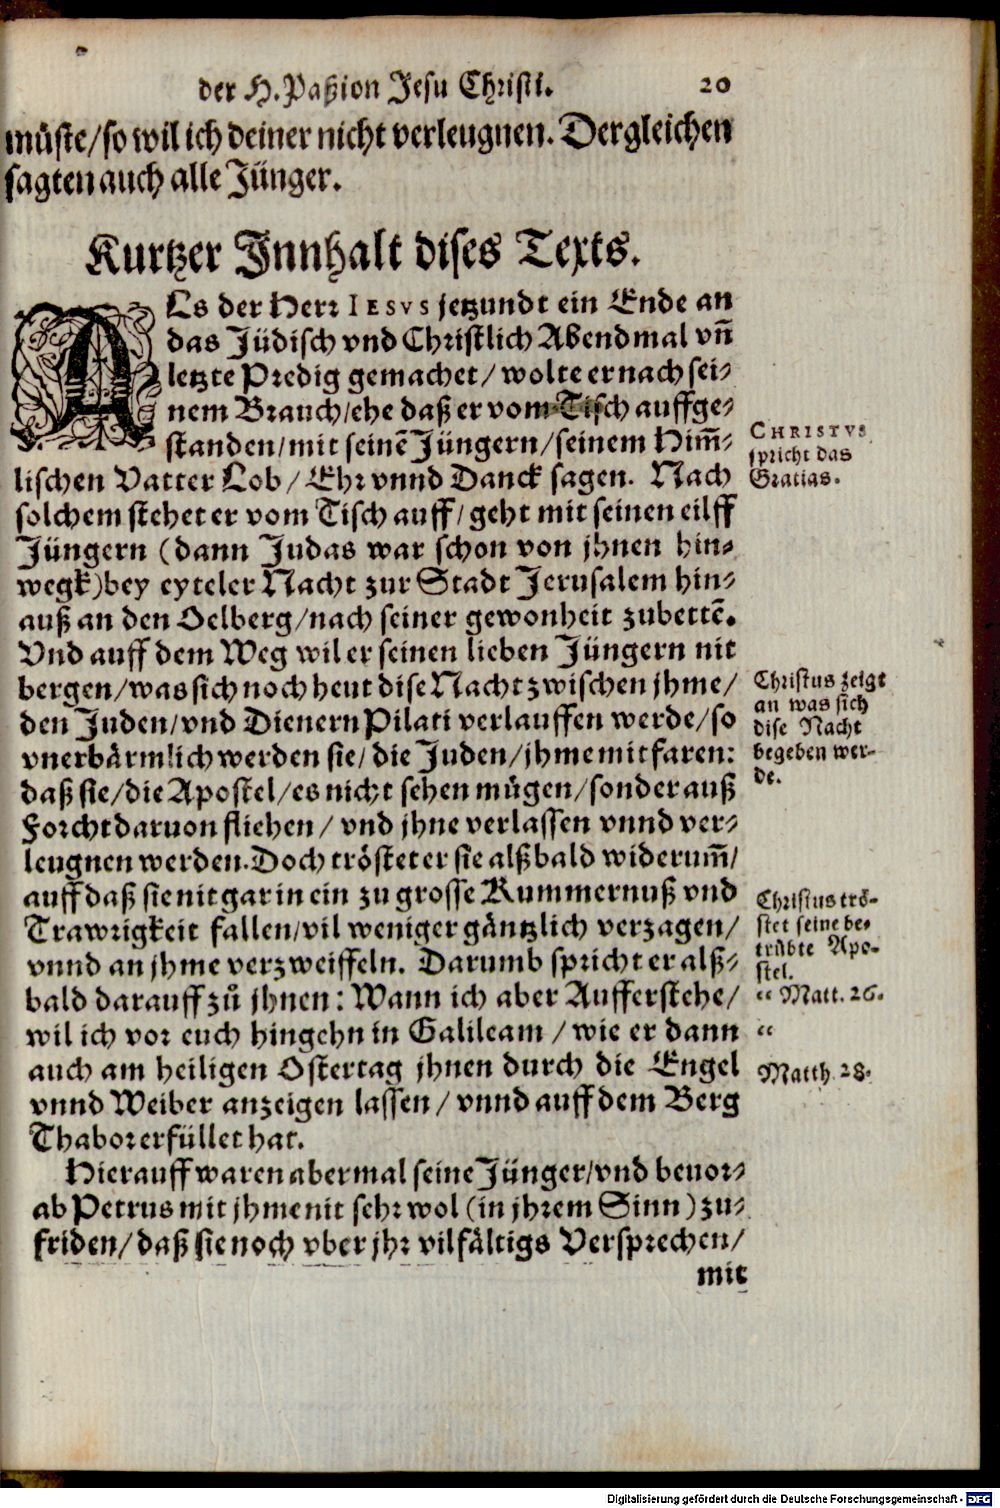 der H. Paßion Jesu Christi. 20
müste/so wil ich deiner nicht verleugnen. Dergleichen
sagten auch alle Jünger.
Kurtzer Innhalt dises Texts.
ALs der Herr IESVS jetzundt ein Ende an
das Jüdisch vnd Christlich Abendmal vñ
letzte Predig gemachet/ wolte er nach sei-
nem Brauch/ehe daß er vom Tisch auffge-
standen/mit seinē Jüngern/seinem Him̃-
lischen Vatter Lob/ Ehr vnnd Danck sagen. Nach
CHRISTVS
spricht das
Gratias.
solchem stehet er vom Tisch auff/ geht mit seinen eilff
Jüngern (dann Judas war schon von jhnen hin-
wegk)bey eyteler Nacht zur Stadt Jerusalem hin-
auß an den Oelberg/nach seiner gewonheit zubettē.
Vnd auff dem Weg wil er seinen lieben Jüngern nit
bergen/was sich noch heut dise Nacht zwischen jhme/
den Juden/vnd Dienern Pilati verlauffen werde/so
vnerbärmlich werden sie/ die Juden/jhme mitfaren:
daß sie/die Apostel/es nicht sehen mügen/sonder auß
Christus zeigt
an was sich
dise Nacht
begeben wer-
de.
Forcht daruon fliehen/ vnd jhne verlassen vnnd ver-
leugnen werden. Doch tröstet er sie alßbald widerum̃/
auff daß sie nit gar in ein zu grosse Kummernuß vnd
Trawrigkeit fallen/vil weniger gäntzlich verzagen/
vnnd an jhme verzweiffeln. Darumb spricht er alß-
Christus trö-
stet seine be-
trübte Apo-
stel.
bald darauff zů jhnen: Wann ich aber Aufferstehe/
“ Matt. 26.
wil ich vor euch hingehn in Galileam / wie er dann
“
auch am heiligen Ostertag jhnen durch die Engel
Matth. 28.
vnnd Weiber anzeigen lassen/ vnnd auff dem Berg
Thabor erfüllet hat.
Hierauff waren abermal seine Jünger/vnd beuor-
ab Petrus mit jhme nit sehr wol (in jhrem Sinn) zu-
friden/ daß sie noch vber jhr vilfältigs Versprechen/
mit
Digitalisierung gefördert durch die Deutsche Forschungsgemeinschaft - DFG